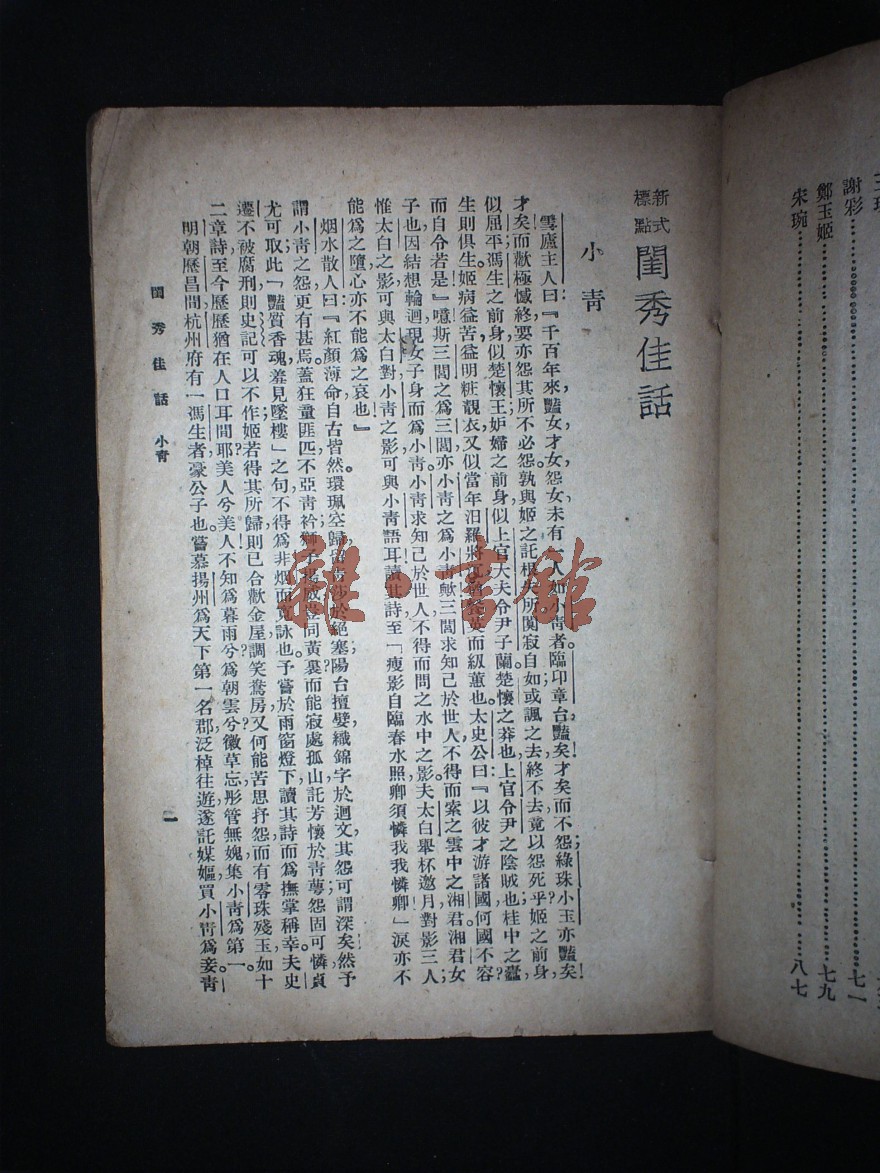 三
謝彩……七一
鄭玉姬……七九
宋琬……八七
新式標點 閨秀佳話
小靑
雪廬主人曰:『千百年來,豔女才女怨女,未有一人如小靑者。臨卭章台豔矣!才矣而不怨;綠珠小玉亦豔矣!
才矣;而歡極憾終,要亦怨其所不必怨。孰與姬之託根失所,闃寂自如;或諷之去,終不去,竟以怨死乎?姬之前身,
似屈平;馮生之前身似楚懷王;妒婦之前身,似上官大夫令尹子蘭。楚懷之莽也,上官令尹之陰賊也,桂中之蠹,
生則俱生。姬病益苦,益明粧靚衣,又似當年汨羅將沉,餐英而級蕙也。太史公曰:『以彼才游諸國,何國不容?
而自令若是』噫!斯三閭之爲三閭,亦小靑之爲小靑歟!三閭求知己於世人不得,而索之雲中之湘君,湘君女
子也,因結想輪迴,現女子身而爲小靑,小靑求知己於世人不得,而問之水中之影。夫太白舉杯邀月,對影三人,
惟太白之影,可與太白對,小靑之影,可與小靑語耳。讀其詩至「瘦影自臨春水照,卿須憐我我憐卿」淚亦不
能爲之墮,心亦不能爲之哀也!』
烟水散人曰:『紅顏薄命,自古皆然。環珮空歸,留靑莎於絕塞;陽台擅孽,織錦字於迴文。其怨可謂深矣,然予
謂小靑之怨,更有甚焉。蓋狂童匪匹,不亞靑衿;獅子揚威,豈同黃裏?而能寂處孤山,託芳懷於靑萼,怨固可憐,貞
尤可取。此「豔質香魂羞見墜樓」之句,不得爲非烟而寬詠也。予嘗於雨窗燈下,讀其詩而爲撫掌稱幸。夫史
遷不被腐刑,則史記可以不作;姬若得其所歸,則已合歡金屋,調笑鴛房,又何能苦思抒怨,而有零珠殘玉,如十
二章詩,至今歷歷猶在人口耳間耶?美人兮美人!不知爲暮雨兮爲朝雲兮?徽草忘彤管無媿,集小靑爲第一。
明朝歷昌間,杭州府有一馮生者,豪公子也。嘗慕揚州爲天下第一名郡,泛棹往遊,遂託媒嫗,買小靑爲妾。靑
閨秀佳話 小靑
一
雜·書館